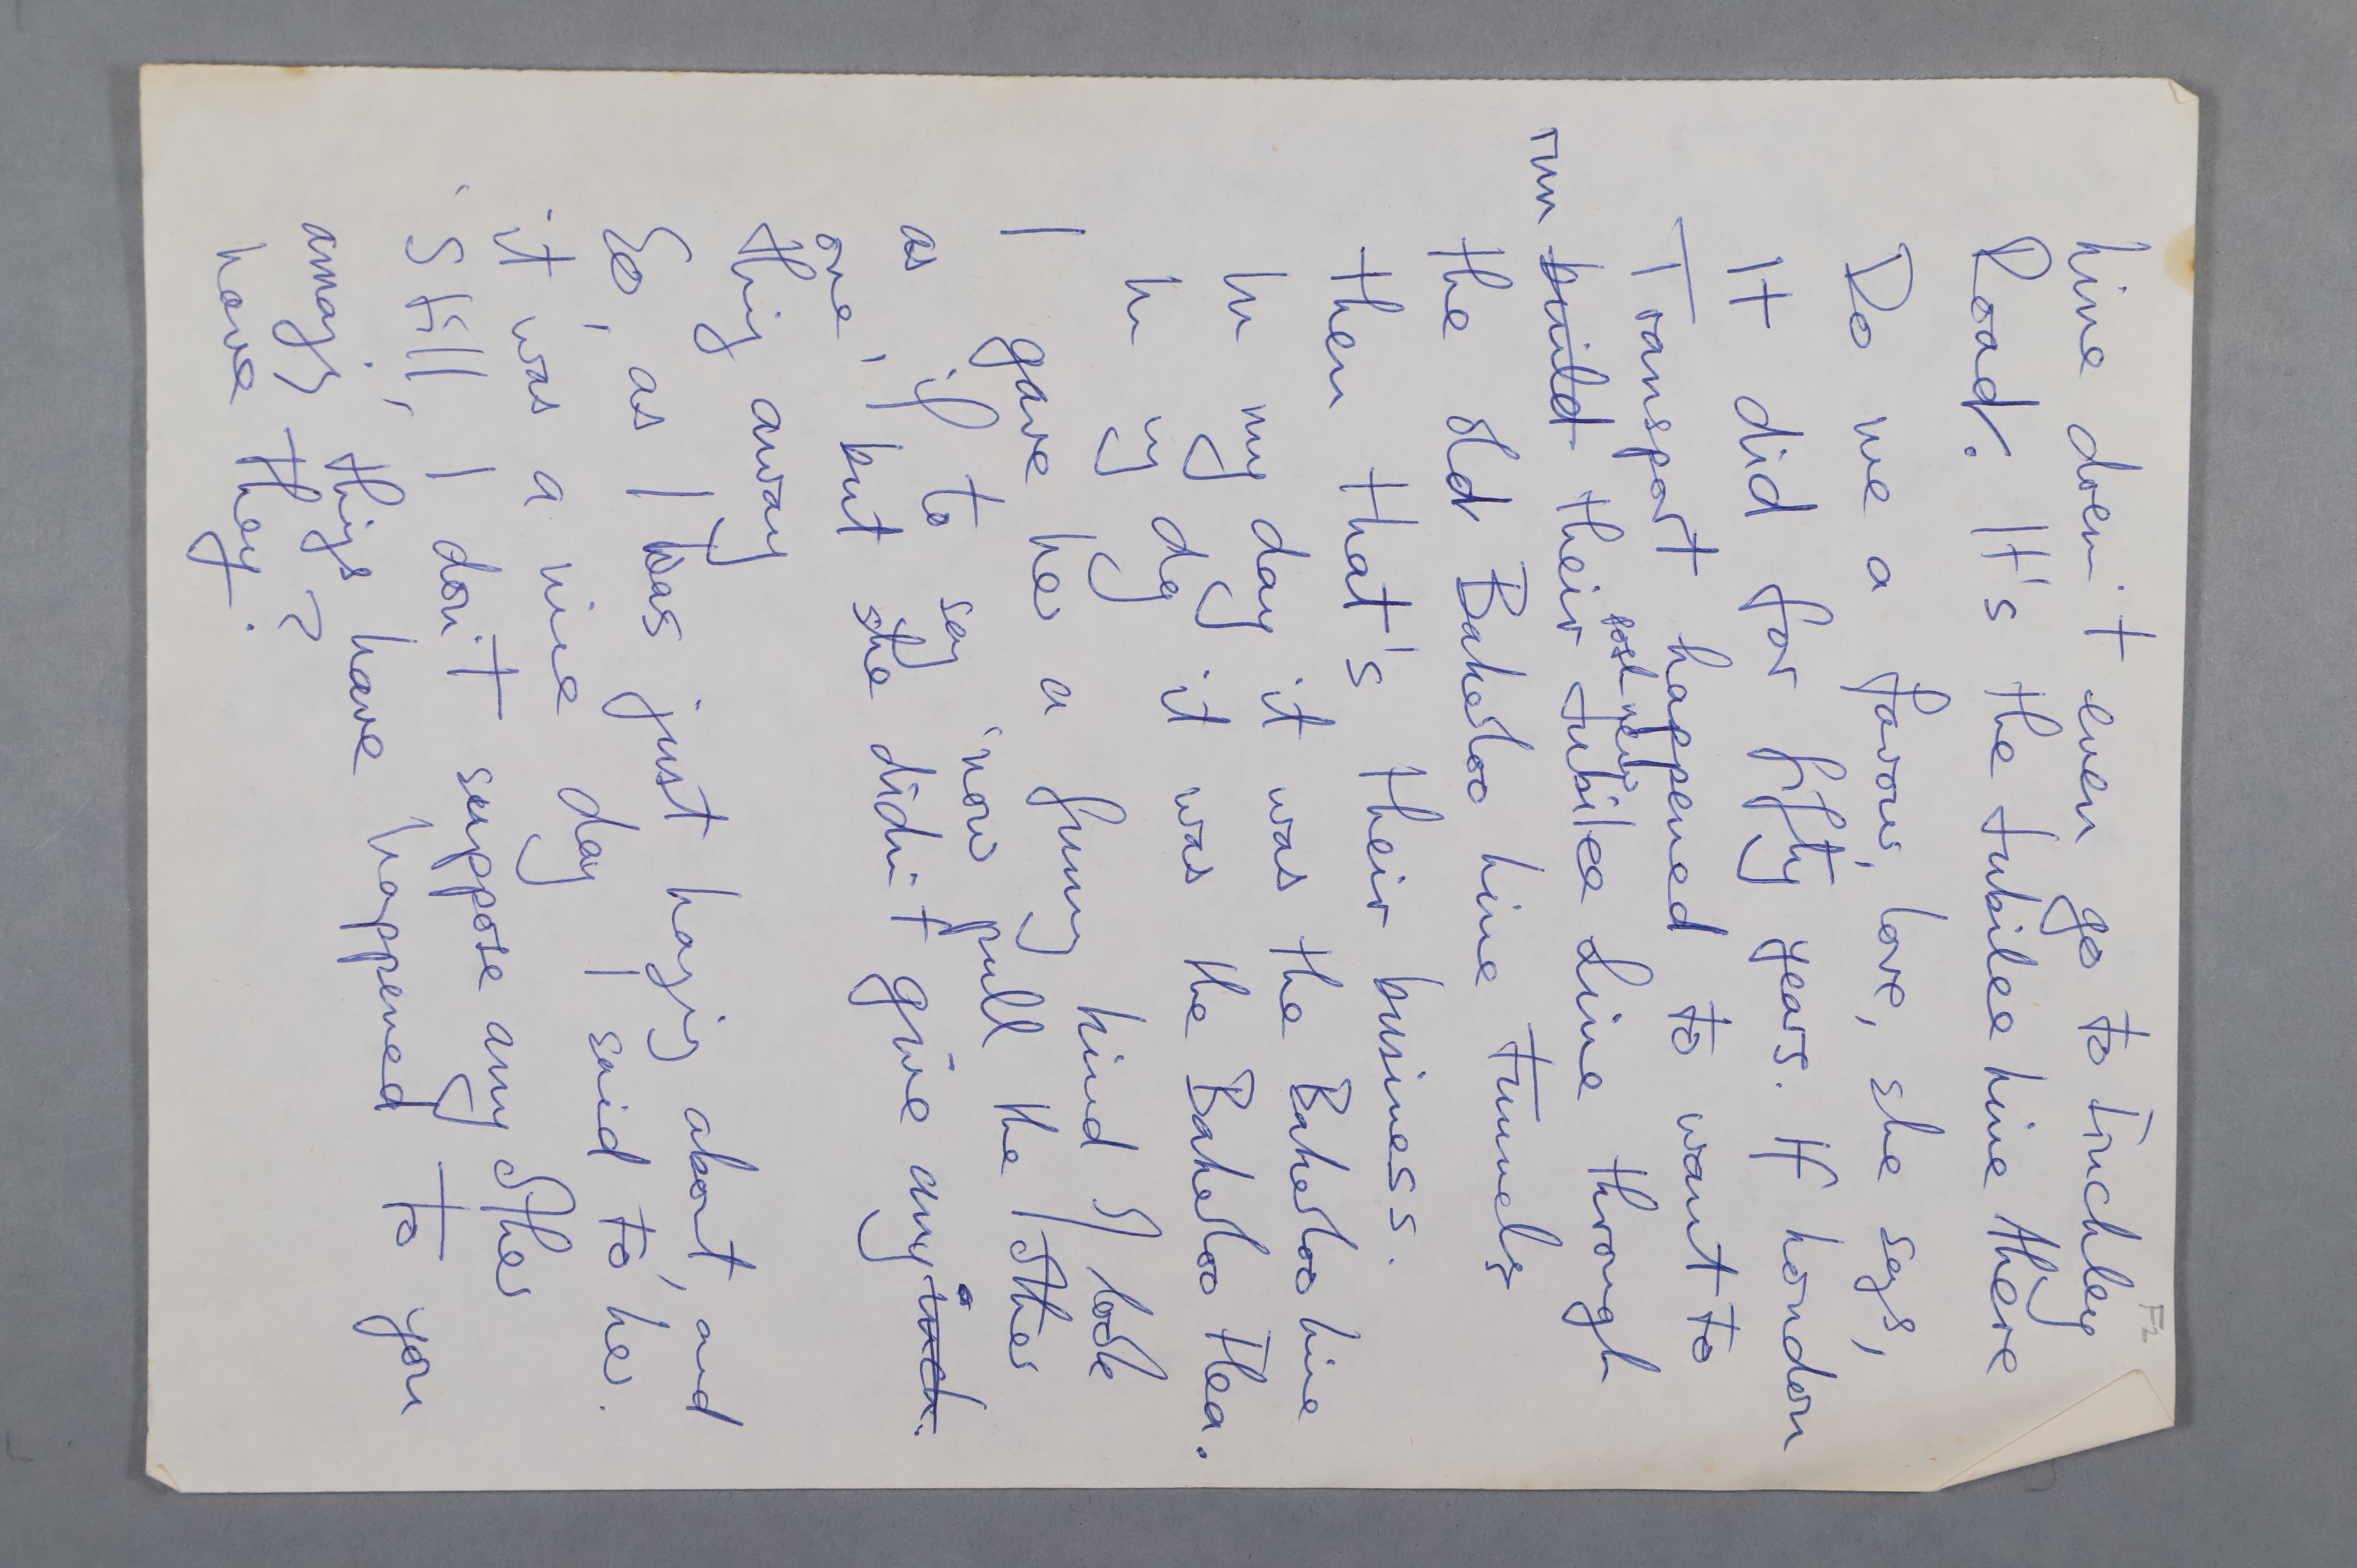 F2
Line doesn't even go to Finchley
Road. It's the Jubilee Line there
Do me a favour, love, she says,
It did for fifty years. If London
Transport happened to want to
posh new
run build their Jubilee Line through
the old Bakerloo Line Tunnels
then that's their business.
In my day it was the Bakerloo Line
In my day it was the Bakerloo Flea.
I gave her a funny kind of look
as if to say 'now pull the other
one' but she didn't give any inch.
thing away
So, as I was just hanging about, and
it was a nice day I said to her.
'Still, I don't suppose any other
amazing things have happened to you
have they?